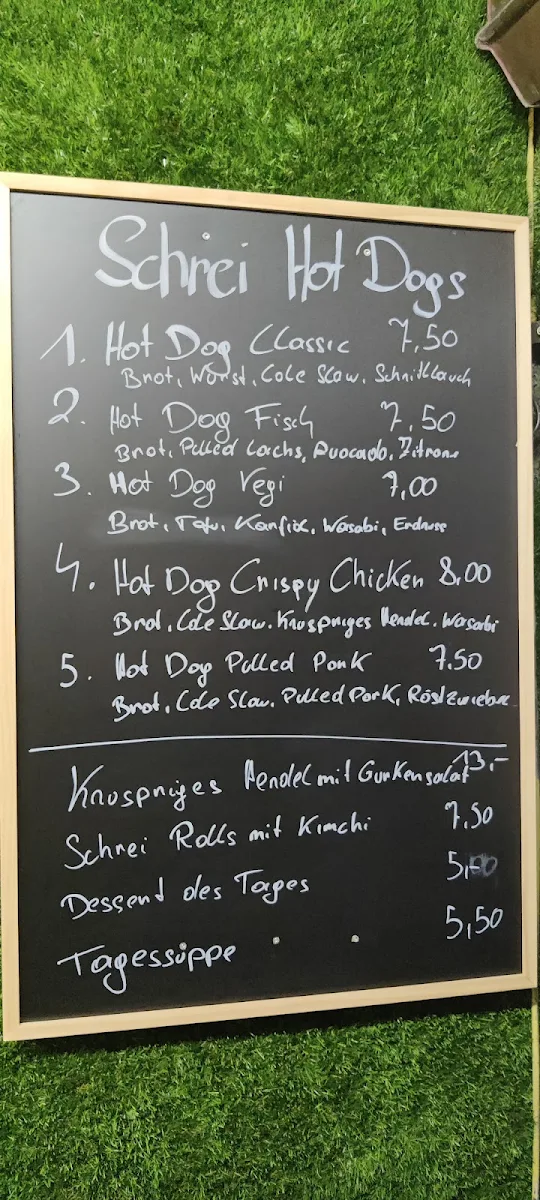 Schrei Hot Dogs
1. Hot Dog Classic 7,50
Brot, Wurst, Cole Slaw, Schnittlauch
2. Hot Dog Fisch 7,50
Brot, Pulled Lachs, Avocado, Zitrone
3. Hot Dog Vegi 7,00
Brot, Tofu, Karfiol, Wasabi, Erdnuss
4. Hot Dog Crispy Chicken 8,00
Brot, Cole Slaw, Knuspriges Hendel, Wasabi
5. Hot Dog Pulled Pork 7.50
Brot, Cole Slaw, Pulled Pork, Röstzwiebel
Knuspriges Hendel mit Gurkensalat 13,-
Schrei Rolls mit Kimchi 7,50
Dessert des Tages 5,00
Tagessuppe 5,50